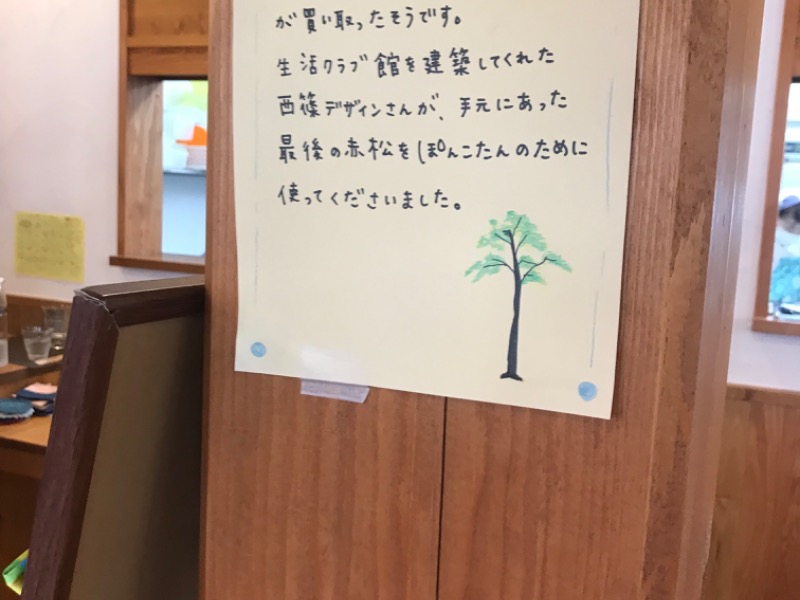 が買い取ったそうです。
生活クラブ館を建築してくれた
西篠デザインさんが、手元にあった
最後の赤松をぽんこたんのために
使ってくださいました。